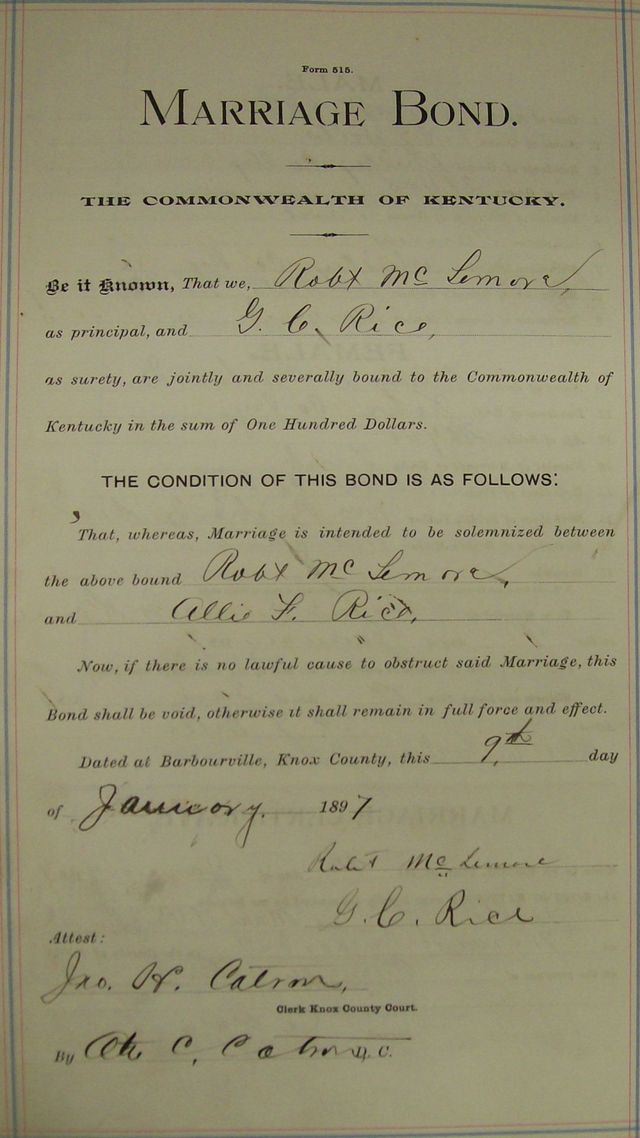 Form 515.
MARRIAGE BOND.
THE COMMONWEALTH OF KENTUCKY.
Be it Known, That we, Robt McLemore,
as principal, and G. C. Rice,
as surety, are jointly and severally bound to the Commonwealth of
Kentucky in the sum of One Hundred Dollars.
THE CONDITION OF THIS BOND IS AS FOLLOWS:
That, whereas, Marriage is intended to be solemnized between
the above bound Robt McLemore,
and Allie F. Rice,
Now, if there is no lawful cause to obstruct said Marriage, this
Bond shall be void, otherwise it shall remain in full force and effect.
Dated at Barbourville, Knox County, this 9th day
of January. 1897
Robt McLemore
G. C. Rice
Attest:
Jno. H. Catron,
Clerk Knox County Court.
By C. Catron D.C.